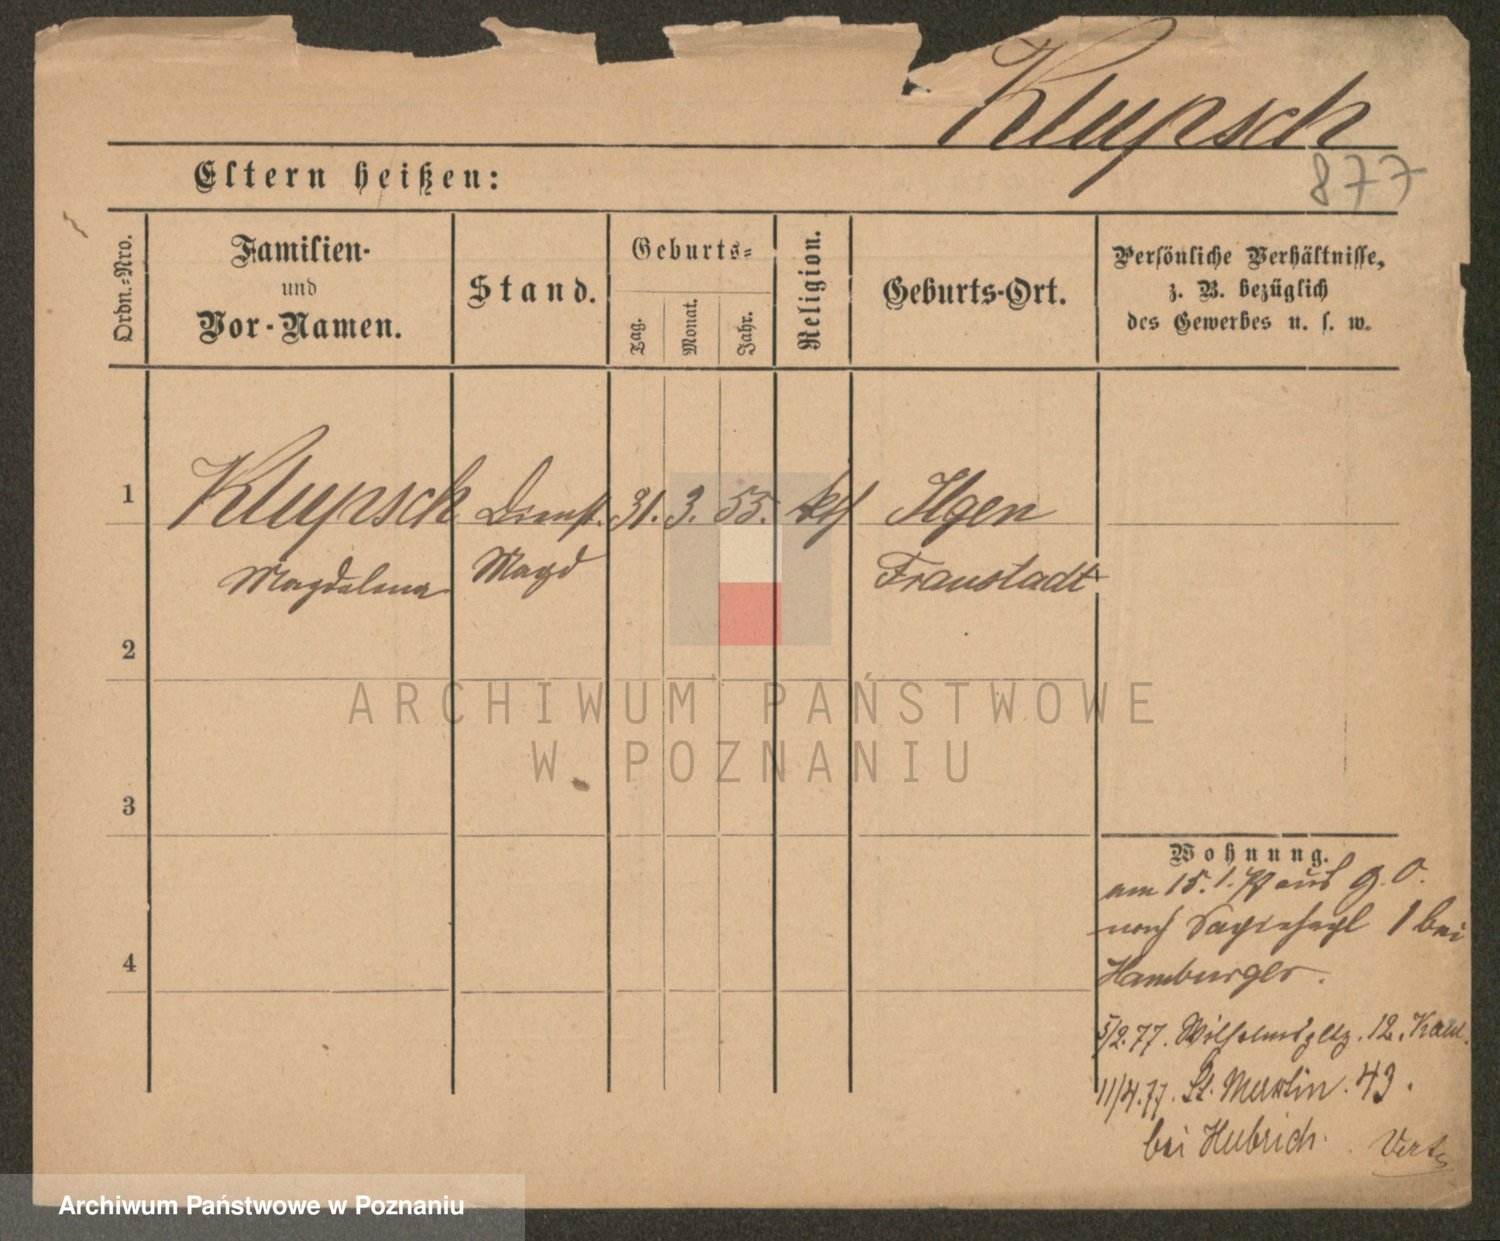 Klupsch
877
Eltern heißen:
Ordn.-Nro.
Familien-
und
Vor-Namen.
Stand.
Geburts-
Tag.
Monat.
Jahr.
Religion.
Geburts-Ort.
Persönliche Verhältnisse,
z. B. bezüglich
des Gewerbes u. s. w.
1
Klupsch
Magdalena
Dienst
Magd
31. 3. 55.
kth
Ilgen
Fraustadt
2
3
4
Wohnung.
am 15.1.77 aus g. O.
nach 1 bei
Hamburger.
5/2.77. Wilhelmspltz. 12.
11/4.77. St. Martin. 43.
bei Hubrich.
ARCHIWUM PAŃSTWOWE
W POZNANIU
Archiwum Państwowe w Poznaniu